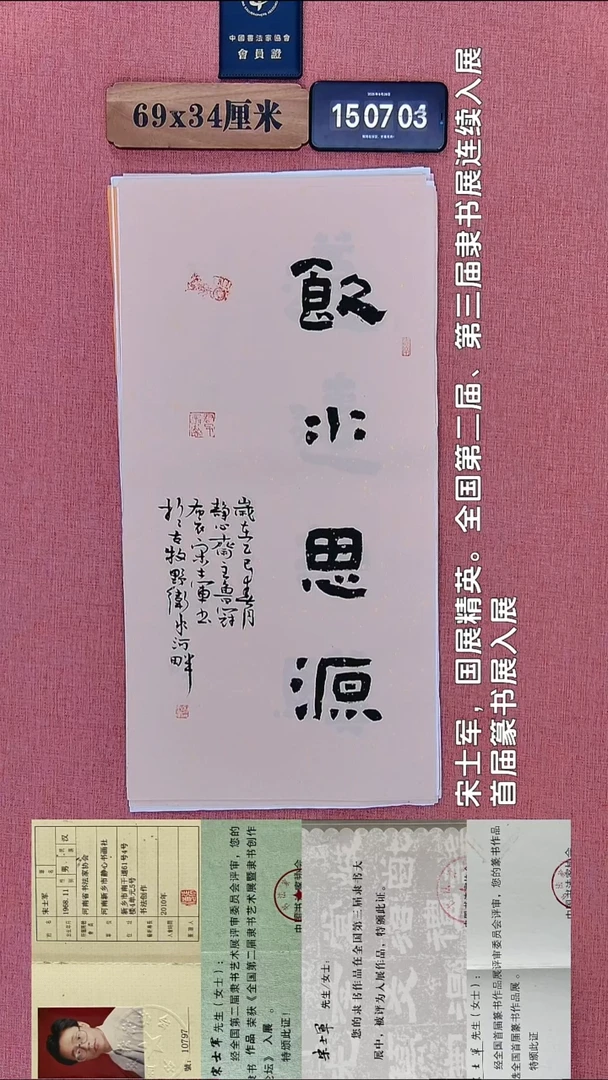 中國書法家協會
會員證
69x34厘米
15 07 03
飲水思源
歲在乙巳春月
静心齋主魯冠
布衣宋士軍書
於古牧野衛水河畔
宋士军，国展精英。全国第二届、第三届隶书展连续入展
首届篆书展入展
宋士军
1968.11
男
汉
河南省书法家协会
河南新乡市静心书画社
新乡市南干道61号4号
楼4单元5号
书法创作
2010年
號：10797
宋士军 先生（女士）：
经全国第二届隶书艺术展评审委员会评审，您的
隶书 作品 荣获《全国第二届隶书艺术展暨隶书创作
论坛》入展。
特颁此证！
宋士军 先生/女士：
您的隶书作品在全国第三届隶书大
展中，被评为入展作品，特颁此证。
士军 先生（女士）：
经全国首届篆书作品展评审委员会评审，您的篆书作品
全国首届篆书作品展。
特颁此证